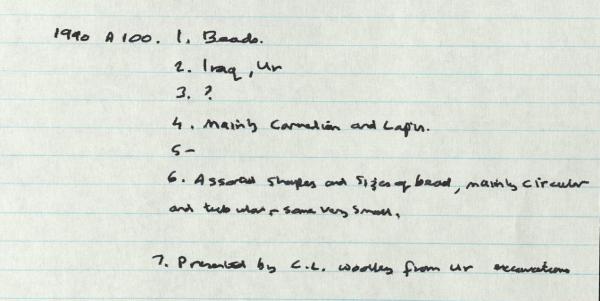 1990 A100. 1. Beads.
2. Iraq, Ur
3. ?
4. Mainly Carnelian and Lapis.
5 -
6. Assorted shapes and sizes of bead, mainly circular
and tubular - some very small.
7. Presented by C.L. Woolley from Ur excavations